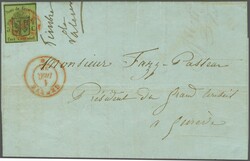 Timbre
de
Valeur
Monsieur Fazy-Pasteur
Président du Grand Conseil
à Genève